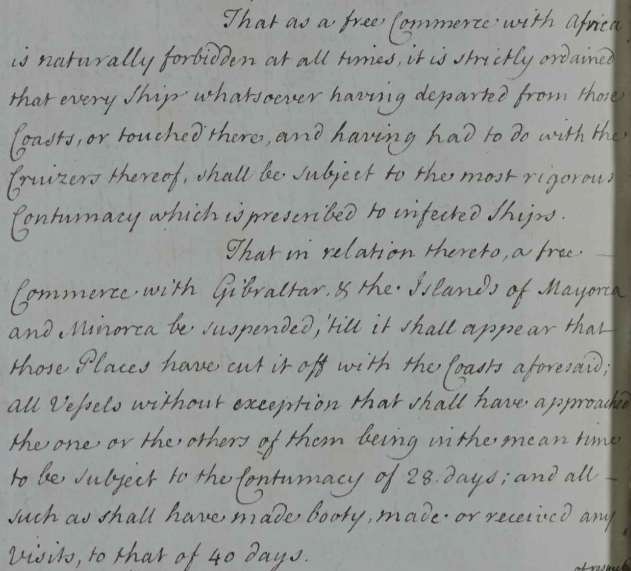 That as a free Commerce with Africa
is naturally forbidden at all times, it is strictly ordained
that every Ship whatsoever having departed from those
Coasts, or touched there, and having had to do with the
Cruizers thereof, shall be subject to the most rigorous
Contumacy which is prescribed to infected Ships.
That in relation thereto, a free
Commerce with Gibraltar & the Islands of Mayorca
and Minorca be suspended, 'till it shall appear that
those Places have cut it off with the Coasts aforesaid;
all Vessels without exception that shall have approached
the one or the others of them being in the mean time
to be subject to the Contumacy of 28 days; and all
such as shall have made booty, made or received any
Visits, to that of 40 days.